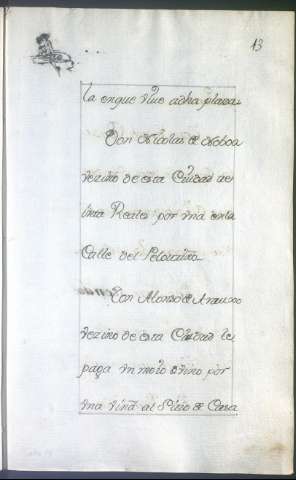 13
la en que vive a dha plaza
Don Nicolas de Noboa
vezino de esta Ciudad se
inta Reales por una en la
Calle del Pelourino
Don Alonso de Araujo
vezino de esta Ciudad le
paga un moio de vino por
una viña al Sitio de Cava